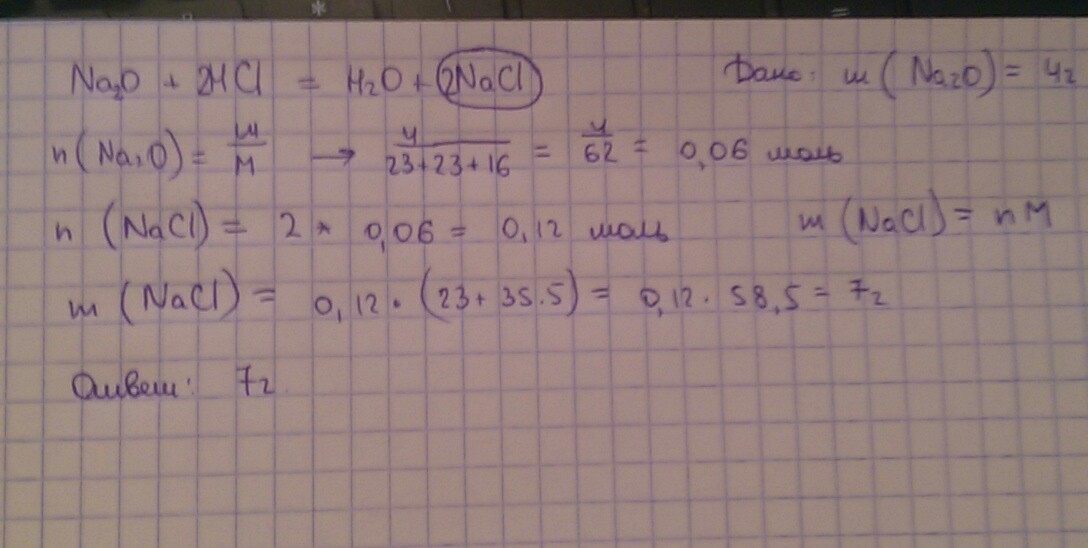 Na₂O + 2HCl = H₂O + 2NaCl Дано: m (Na₂O) = 4г
n (Na₂O) = m/M → 4/(23+23+16) = 4/62 = 0,06 моль
n (NaCl) = 2 * 0,06 = 0,12 моль m (NaCl) = nM
m (NaCl) = 0,12 · (23 + 35.5) = 0,12 · 58,5 = 7г
Ответ: 7г